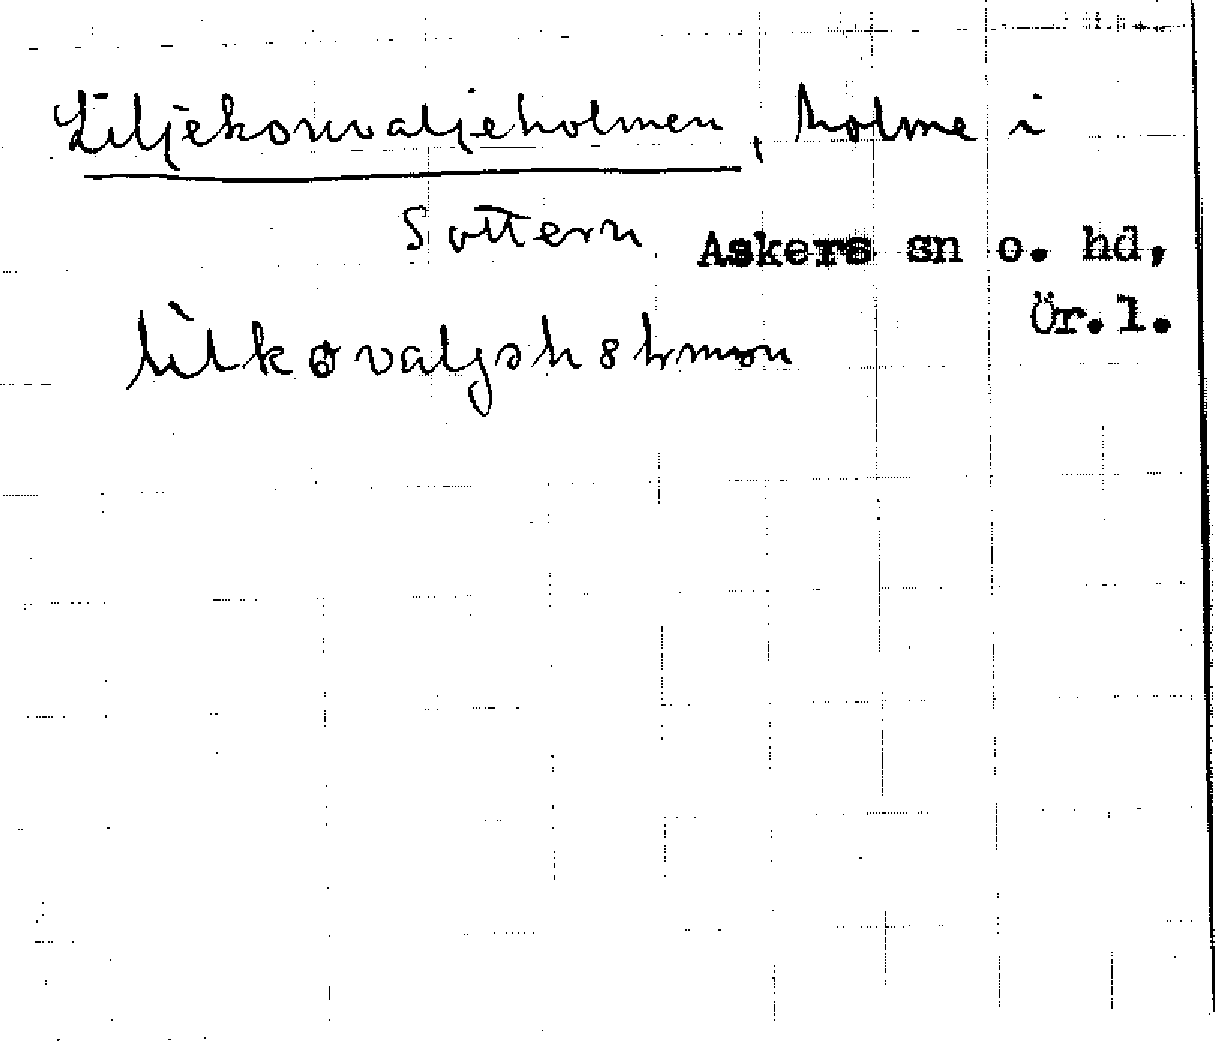 Liljekonvaljeholmen, holme i
Sottern Askers sn o. hd,
Ör.l.